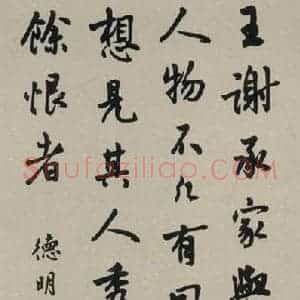 王謝承家學
人物不凡有
想見其人秀
餘恨者
德明
shufaziliao.com